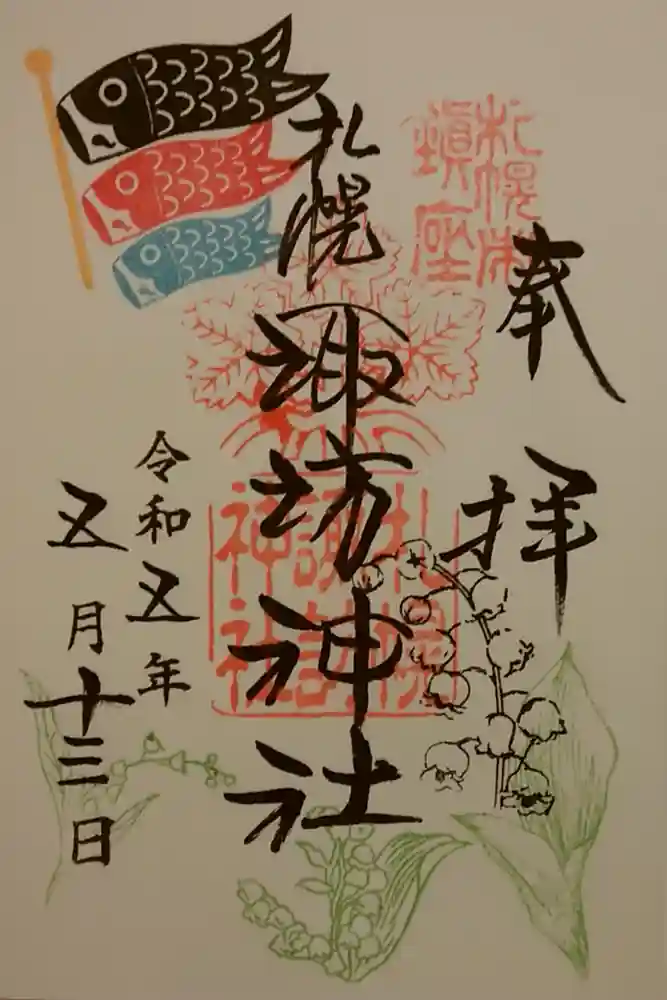 奉拝
札幌市
鎮座
札幌諏訪神社
札幌
諏訪
神社
令和五年
五月十三日